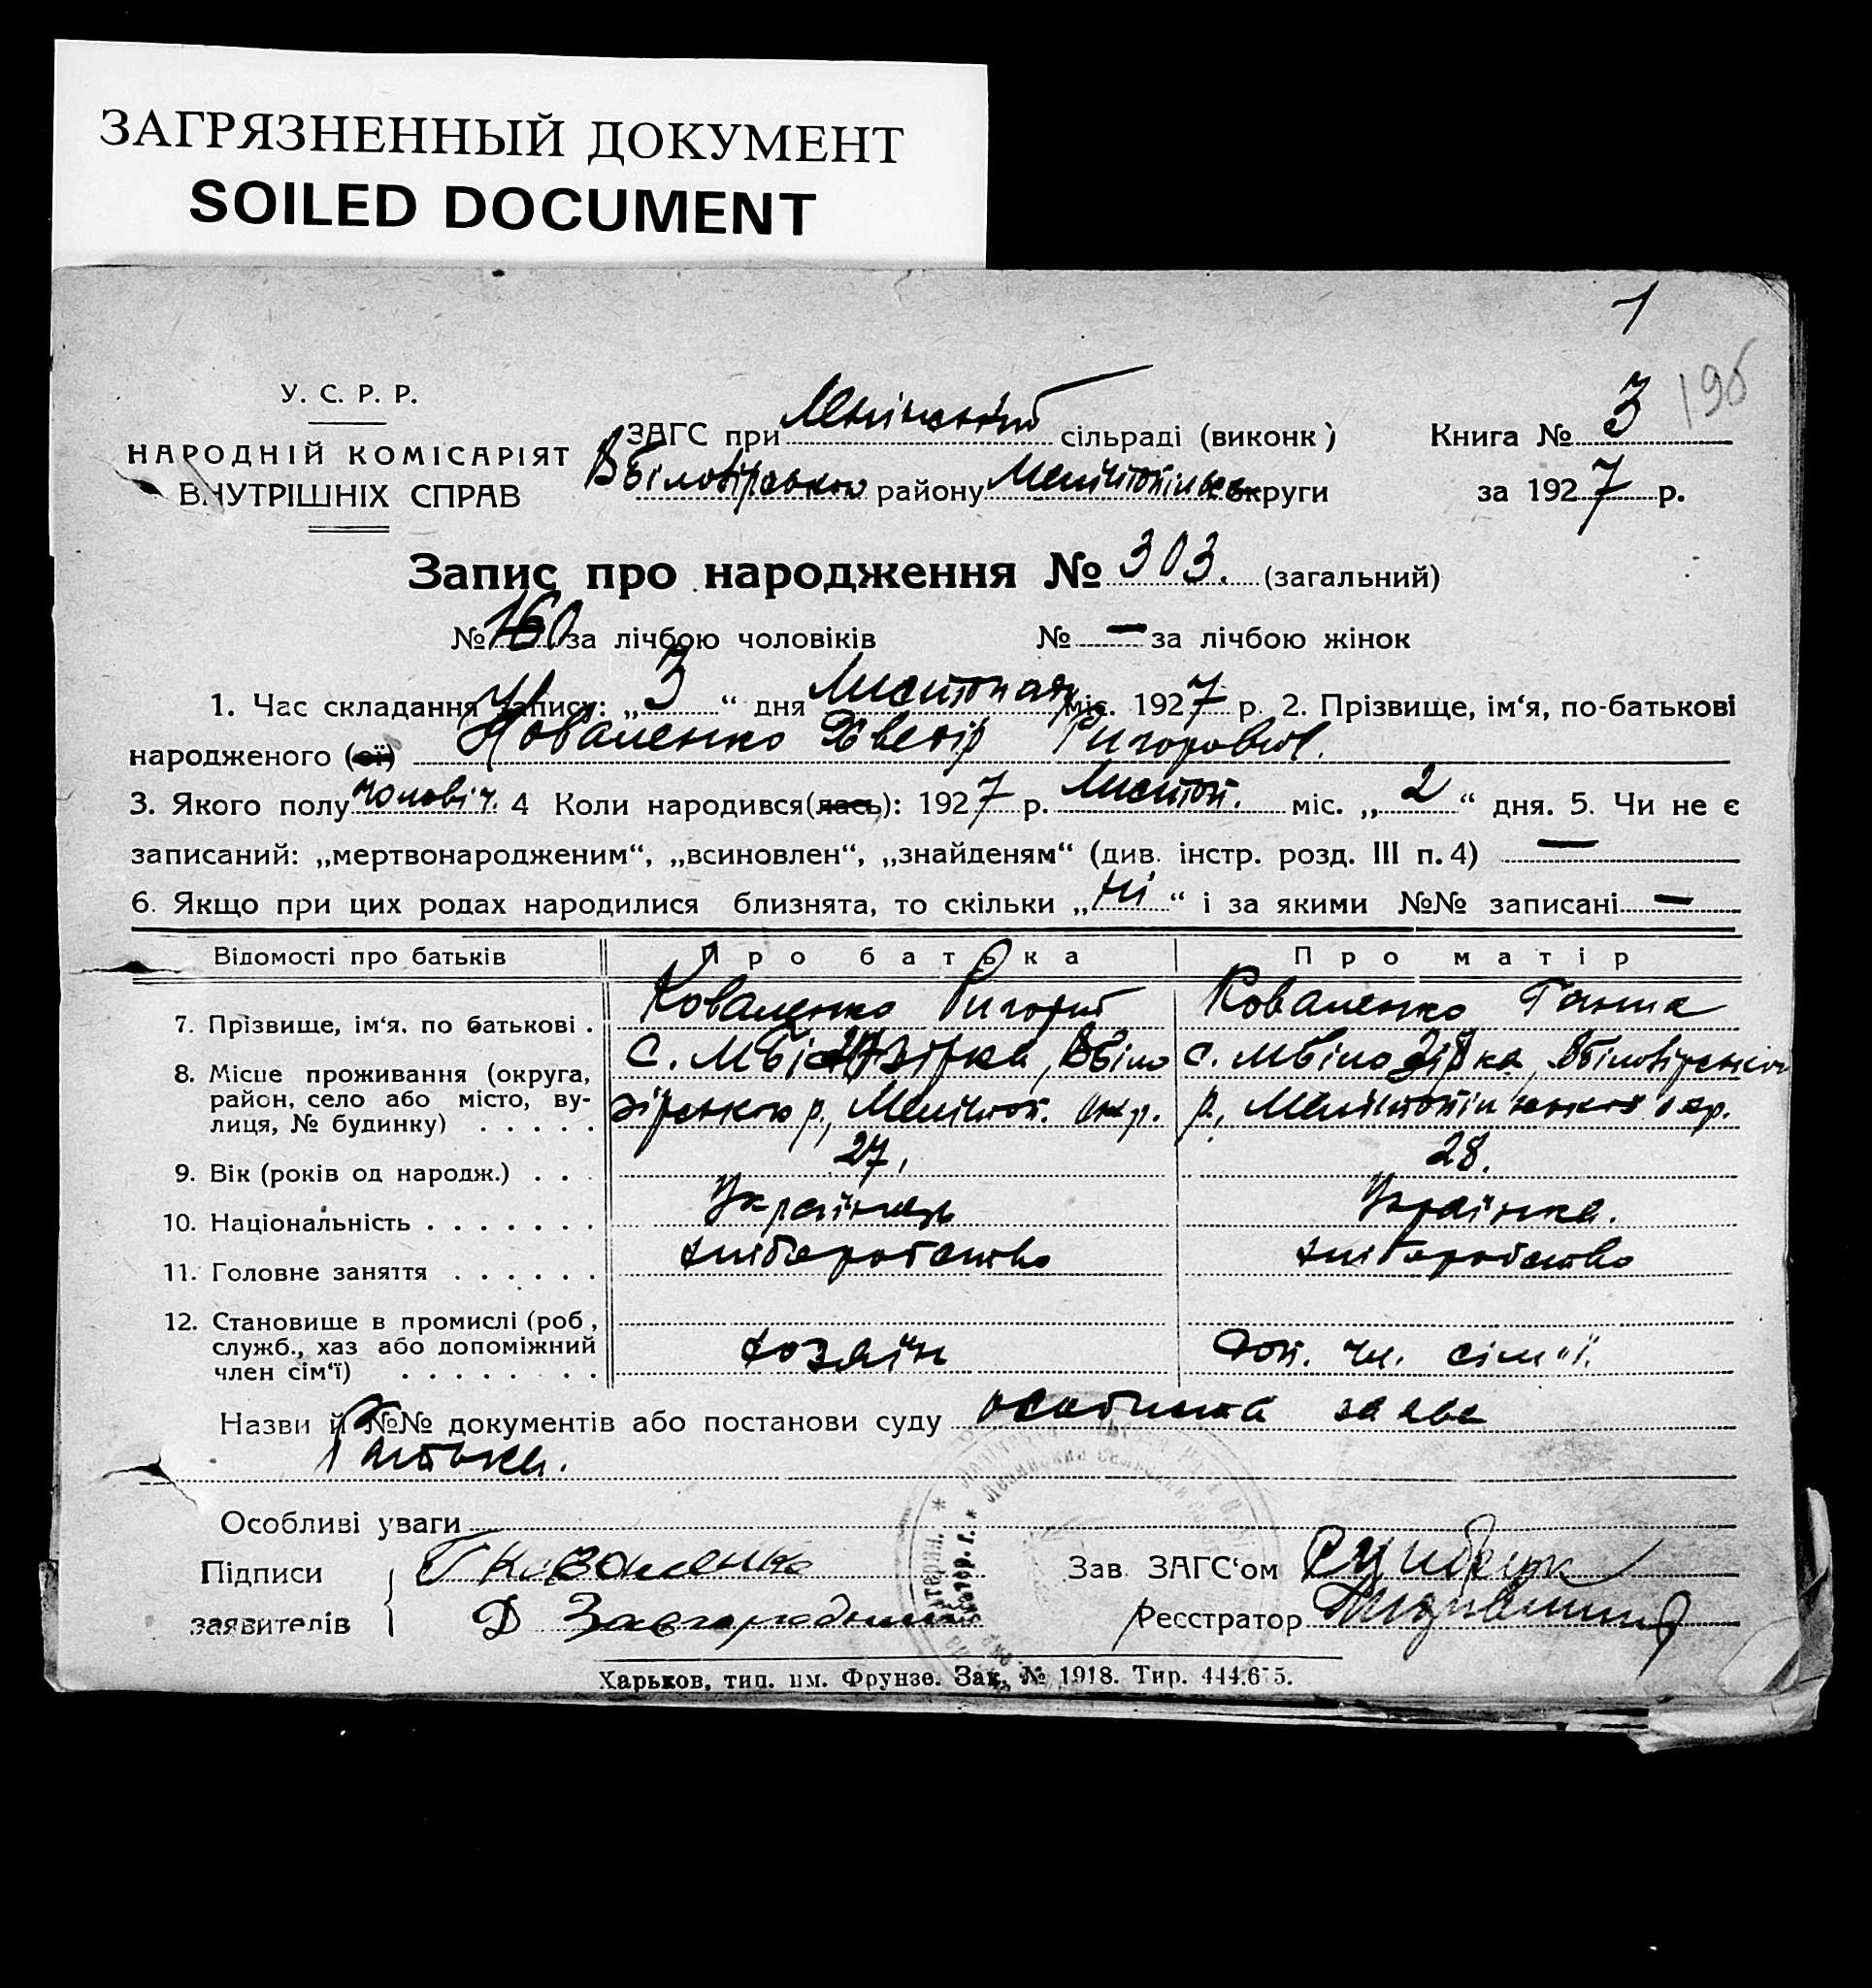 ЗАГРЯЗНЕННЫЙ ДОКУМЕНТ
SOILED DOCUMENT
1
У. С. Р. Р.
НАРОДНІЙ КОМІСАРІЯТ
ВНУТРІШНІХ СПРАВ
ЗАГС при Ленінській сільраді (виконк)
Вбілозірського району Меліт округи
Книга № 3
за 1927 р.
Запис про народження № 303. (загальний)
№ 160 за лічбою чоловіків № — за лічбою жінок
1. Час складання запису: „3“ дня Листопада міс. 1927 р. 2. Прізвище, ім‘я, по-батькові
народженого (ої) Коваленко Григорович.
3. Якого полу чоловіч. 4 Коли народився(лась): 1927 р. Листоп. міс. „2“ дня. 5. Чи не є
записаний: „мертвонародженим“, „всиновлен“, „знайденям“ (див. інстр. розд. III п. 4) —
6. Якщо при цих родах народилися близнята, то скільки „ні“ і за якими №№ записані —
Відомості про батьків Про батька Про матір
7. Прізвище, ім‘я. по батькові . Коваленко Григорій Коваленко Ганна
8. Місце проживання (округа, с. Мбілозірка, Вбіло с. Мбілозірка, Вбілозірського
район, село або місто, ву-
лиця, № будинку) . . . . . зірського р., Меліт��п. окр. р., Мелітопільської окр.
9. Вік (років од народж.) . . . 27, 28.
10. Національність . . . . . . . Українець Українка.
11. Головне заняття . . . . . . хліборобство хліборобство
12. Становище в промислі (роб,
служб., хаз або допоміжний хозяїн Доп. чл. сім"ї.
член сім‘ї) . . . . . . . .
Назви й №№ документів або постанови суду особиста заява
батька.
Особливі уваги
Підписи Г Коваленко Зав. ЗАГС‘ом
заявителів Д Реєстратор
Харьков, тип. им. Фрунзе. Зак. № 1918. Тир. 444.675.